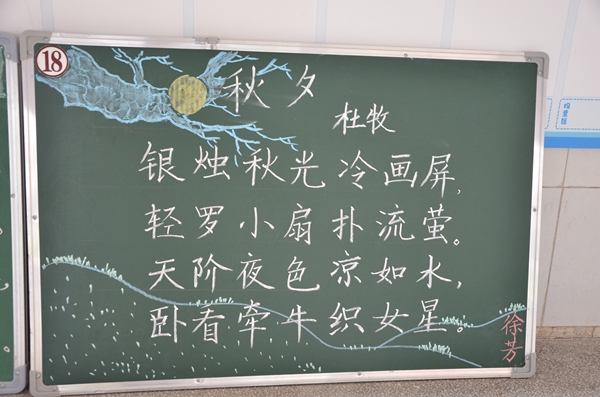 18
秋夕
杜牧
银烛秋光冷画屏,
轻罗小扇扑流萤。
天阶夜色凉如水,
卧看牵牛织女星。
徐芳